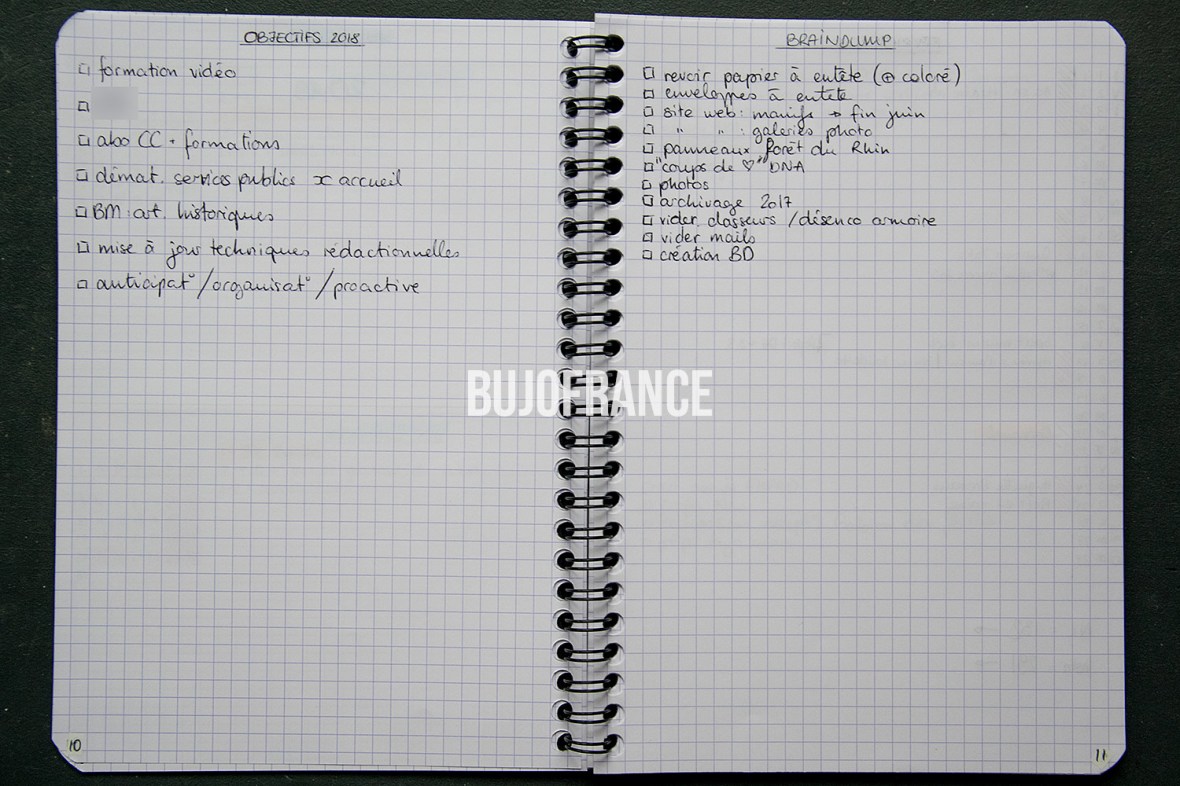 OBJECTIFS 2018
□ formation vidéo
□
□ abo CC + formations
□ démat. services publics x accueil
□ BM : art. historiques
□ mise à jour techniques rédactionnelles
□ anticipat° / organisat° / proactive
10
BRAINDUMP
□ revoir papier à entête (⊕ coloré)
□ enveloppes à entête
□ site web : manifs → fin juin
□ " " : galeries photo
□ panneaux Forêt du Rhin
□ "coups de ♡" DNA
□ photos
□ archivage 2017
□ vider classeurs / désenco armoire
□ vider mails
□ création BD
11
BUJOFRANCE